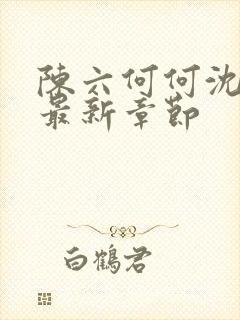 陳六何何沈
最新章節
白鶴君